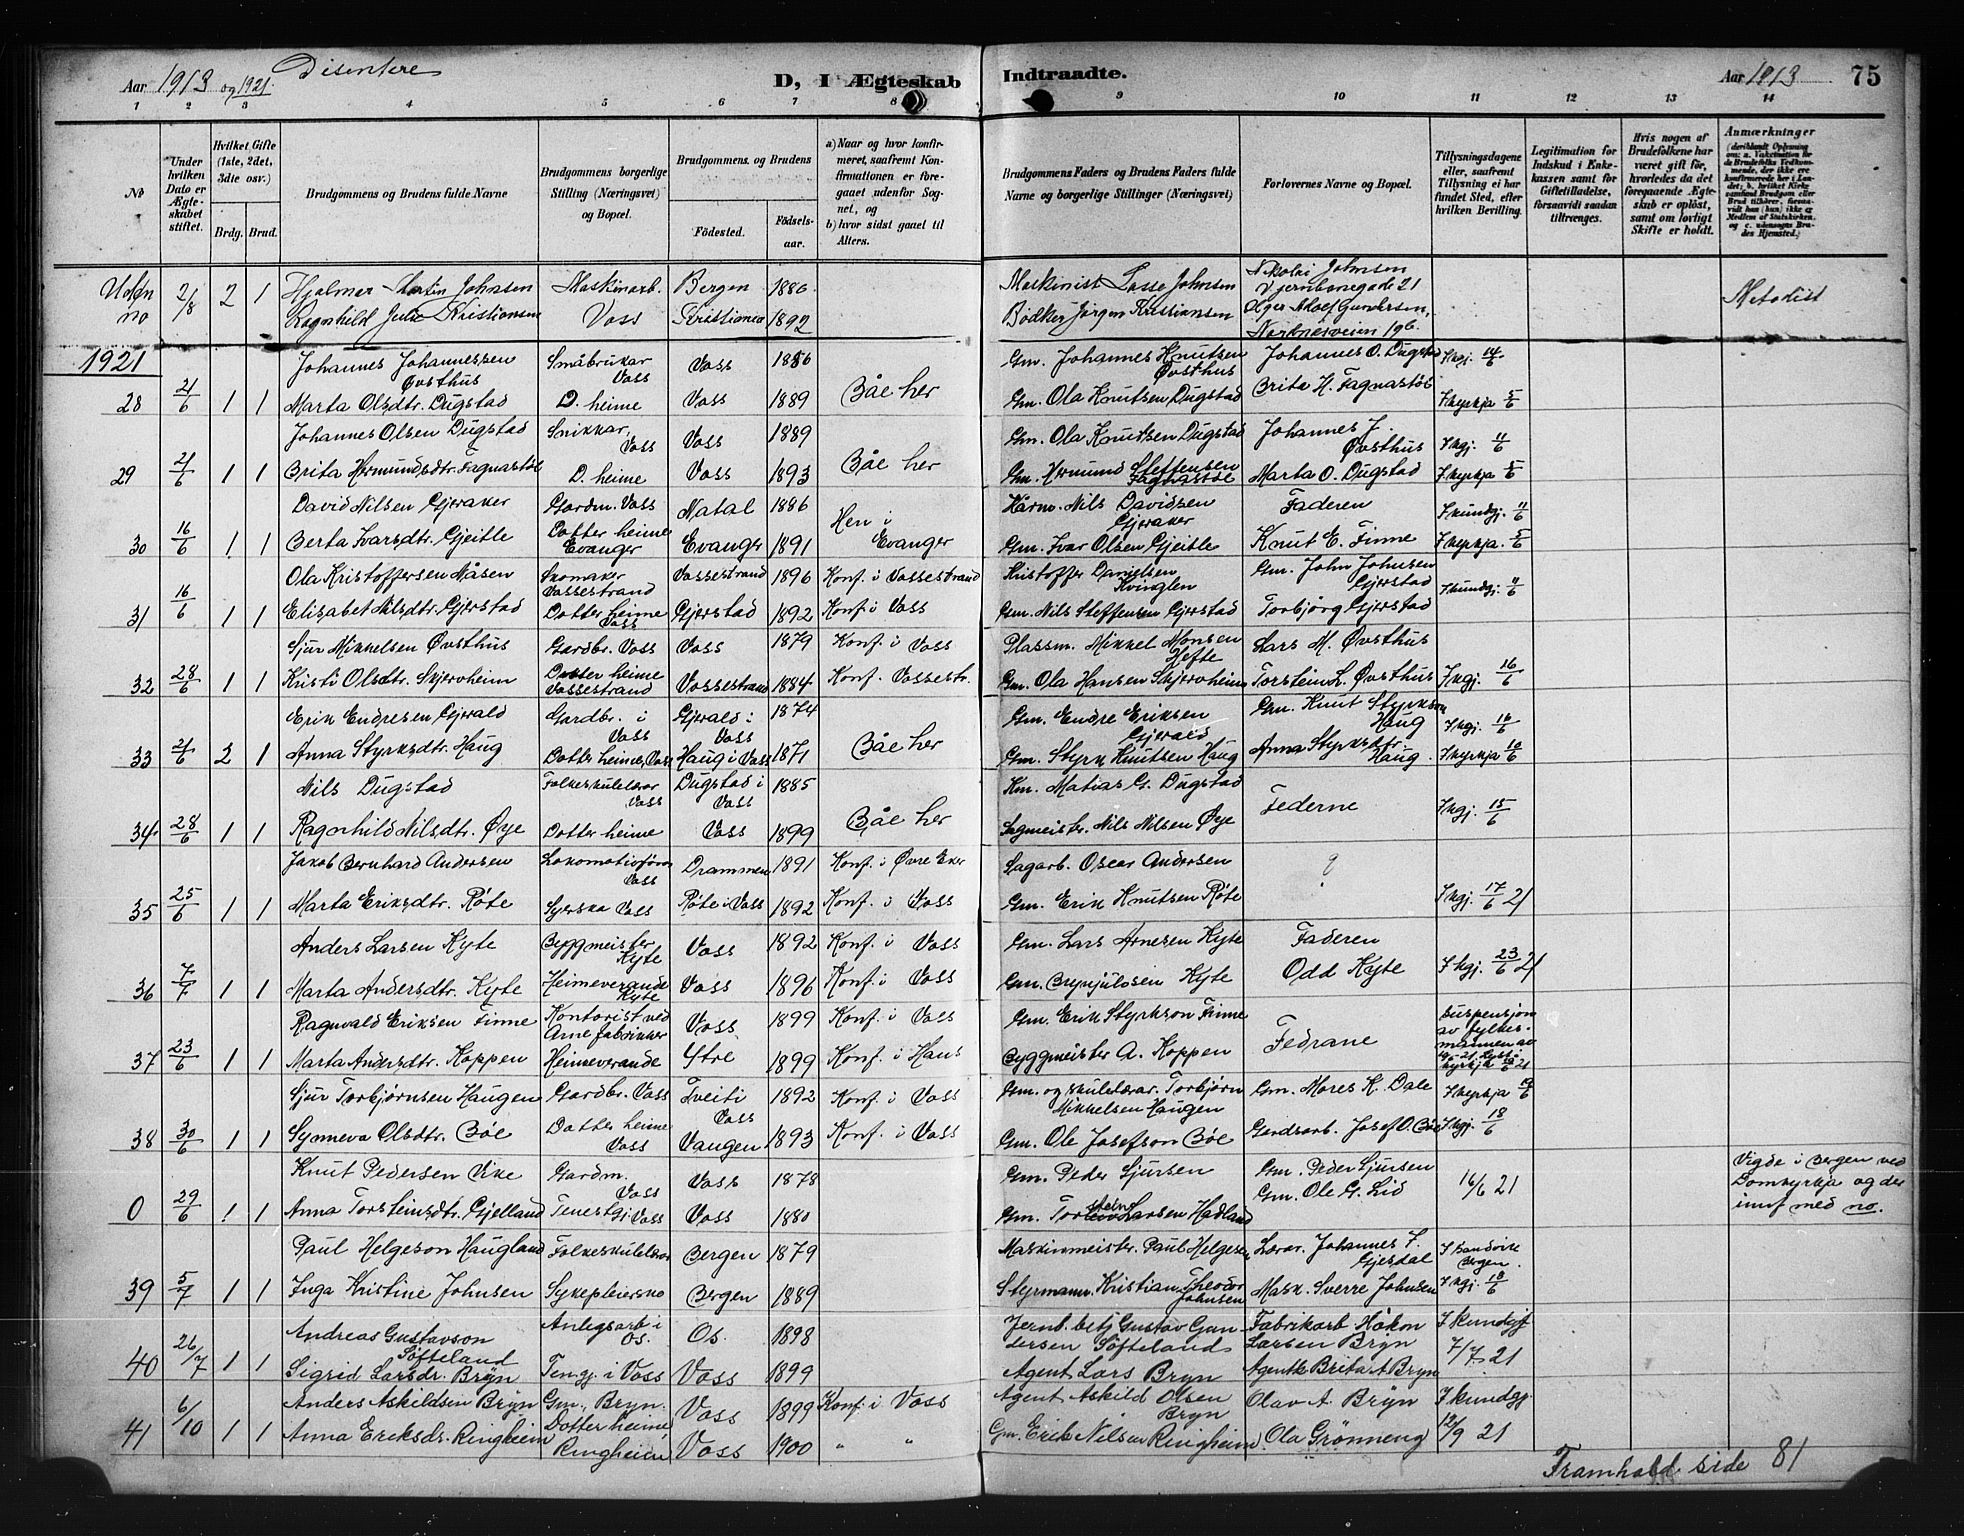 Aar 1913 og 1921. Disentere
D, I Ægteskab Indtraadte.
Aar 1913 75
1 2 3 4 5 6 7 8 9 10 11 12 13 14
No
Under hvilken Dato er Ægteskabet stiftet.
Hvilket Gifte (1ste, 2det, 3die osv.)
Brdg. Brud.
Brudgommens og Brudens fulde Navne
Brudgommens borgerlige Stilling (Næringsvei) og Bopæl.
Brudgommens og Brudens
Fødested.
Fødselsaar.
a) Naar og hvor konfirmeret, saafremt Konfirmationen er foregaaet udenfor Sognet, og
b) hvor sidst gaaet til Alters.
Brudgommens Faders og Brudens Faders fulde Navne og borgerlige Stillinger (Næringsvei)
Forlovernes Navne og Bopæl.
Tillysningsdagene eller, saafremt Tillysning ei har fundet Sted, efter hvilken Bevilling.
Legitimation for Indskud i Enkekassen samt for Giftetilladelse, forsaavidt saadan tiltrænges.
Hvis nogen af Brudefolkene har været gift før, hvorledes da det foregaaende Ægteskab er opløst, samt om lovligt Skifte er holdt.
Anmærkninger
Uden no 2/8 2 1 Hjalmar Martin Johnsen Maskinarb. Bergen 1886 Maskinist Lasse Johnsen Nikolai Johnsen
Ragnhild Julie Kristiansen Voss Kristiania 1892 Bødker Jørgen Kristiansen Metodist
1921
Johannes Johannessen Øvsthus Småbrukar Voss Voss 1886 Gm. Johannes Knutsen Øvsthus Johannes O. Dugstad I kgj. 14/6
28 2/6 1 1 Marta Olsdtr. Dugstad D. heime Voss 1889 Båe her Gm. Ola Knutsen Dugstad Brita H. Fagnastøl I kyrkja 5/6
Johannes Olsen Dugstad Snikkar, Voss Voss 1889 Gm. Ola Knutsen Dugstad Johannes J. Øvsthus I kgj. 11/6
29 21/6 1 1 Brita Hermundsdtr. Fagnastøl D. heime Voss 1893 Båe her Gm. Hermund Steffensen Fagnastøl Marta O. Dugstad I kyrkja 5/6
David Nilsen Gjeraker Gardm. Voss Natal 1886 Kårm. Nils Davidsen Gjeraker Faderen I kundgj. 11/6
30 16/6 1 1 Berta Ivarsdtr. Gjeitle Dotter heime Evanger Evanger 1891 Hen i Evanger Gm. Ivar Olsen Gjeitle Knut E. Finne I kyrkja. 5/6
Ola Kristoffersen Måsen Skomaker Vossestrand Vossestrand 1896 Konf. i Vossestrand Kristoffer Danielsen Kvinglen Gm. John Johnsen Gjerstad I kundgj. 11/6
31 16/6 1 1 Elisabet Nilsdtr. Gjerstad Dotter heime Voss Gjerstad 1892 Konf. i Voss Gm. Nils Steffensen Gjerstad Torbjørg Gjerstad
Sjur Mikkelsen Øvsthus Gardbr. Voss Voss 1879 Konf. i Voss Plassm. Mikkel Monsen Hefte Lars M. Øvsthus
32 28/6 1 1 Kristi Olsdtr. Skjerveheim Dotter heime Vossestrand Vossestrand 1884 Konf. Vossestr. Gm. Ola Hansen Skjerveheim Torstein L. Øvsthus I kgj. 16/6
Erik Endresen Gjerald Gardbr. i Voss Gjerald i Voss 1874 Gm. Endre Eriksen Gjerald Gm. Knut Styrkson Haug I kgj. 16/6
33 21/6 2 1 Anna Styrksdtr. Haug Dotter heime, Voss Haug i Voss 1871 Båe her Gm. Styrk Knutsen Haug Anna Styrksdtr. Haug I kyrkja 10/6
Nils Dugstad Folkeskulelærar Voss Dugstad i Voss 1885 Km. Matias G. Dugstad
34 28/6 1 1 Ragnhild Nilsdtr. Øye Dotter heime Voss 1899 Båe her Sagmeistr. Nils Nilsen Øye Federne I kgj. 15/6
Jakob Bernhard Andersen Lokomotivfører Voss Drammen 1891 Konf. i Øvre Eker Sagarb. Oscar Andersen ?
35 25/6 1 1 Marta Eriksdtr. Røte Syerska Voss Røte i Voss 1892 Konf. i Voss Gm. Erik Knutsen Røte I kgj. 17/6 21
Anders Larsen Kyte Byggmeister Kyte Voss 1892 Konf. i Voss Gm. Lars Arnesen Kyte Faderen
36 7/7 1 1 Marta Andersdtr. Kyte Heimeverande Kyte Voss 1896 Konf. i Voss Gm. Brynjulvsen Kyte Odd Kyte I kgj. 23/6 21
Ragnvald Eriksen Finne Kontorist ved Arne fabrikker Voss 1899 Konf. i Voss Gm. Erik Styrkson Finne Suspensjon av fylkesmannen av
37 23/6 1 1 Marta Andersdtr. Koppen Heimeverande Stre 1899 Konf. i Haus Byggmeister A. Koppen Fedrane
Sjur Torbjørnsen Haugen Gardbr. Voss Tveiti Voss 1892 Konf. i Voss Gm. og skulelærar. Torbjørn Mikkelsen Haugen Gm. Mores K. Dale I kyrkja 19/6
38 30/6 1 1 Synneva Olsdtr. Bøe Dotter heime Voss Vangen 1893 Konf. i Voss Gm. Ole Josefson Bøe Gardsarb. Josef O. Bøe I kgj. 18/6
Knut Pedersen Vike Gardm. Voss Voss 1878 Gm. Peder Sjursen Gm. Peder Sjursen Vigde i Bergen ved
0 29/6 1 1 Anna Torsteinsdtr. Gjelland Tenestgj. Voss Voss 1880 Gm. Torstein Larsen Hadland Gm. Ole G. Lid 16/6 21 Domkyrkja og der innf med no.
Paul Helgeson Haugland Folkeskulelærar Bergen 1879 Maskinmeister. Paul Helgesen Lærar. Johannes F. Gjesdal I Sandvike Bergen.
39 5/7 1 1 Inga Kristine Johnsen Sykepleierske Bergen 1889 Styrmann. Kristian Theodor Johnsen Mask. Sverre Johnsen I kgj. 18/6
Andreas Gustavson Søfteland Anlegsarb i Os. Os. 1898 Jernb. betj Gustav Gundersen Søfteland Fabrikarb Håkon Larsen Bryn I kundgj
40 26/7 1 1 Sigrid Larsdr. Bryn Ten.gj. i Voss Voss 1899 Agent Lars Bryn Agentk Brita A Bryn 7/7 21
Anders Askildsen Bryn Gm., Bryn. Voss 1899 Konf. i Voss Agent Askild Olsen Bryn Olav A. Bryn I kundgj.
41 6/10 1 1 Anna Eriksdr. Ringheim Dotter heime, Ringheim Voss 1900 " " Gm. Erik Nilsen Ringheim. Ola Grønneng 12/9 21
Framhald side 81